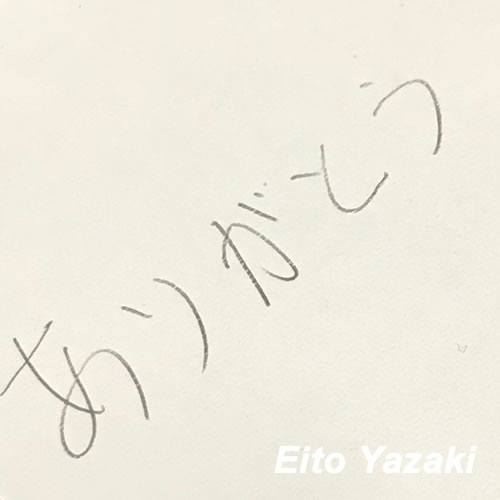 ありがとう
Eito Yazaki